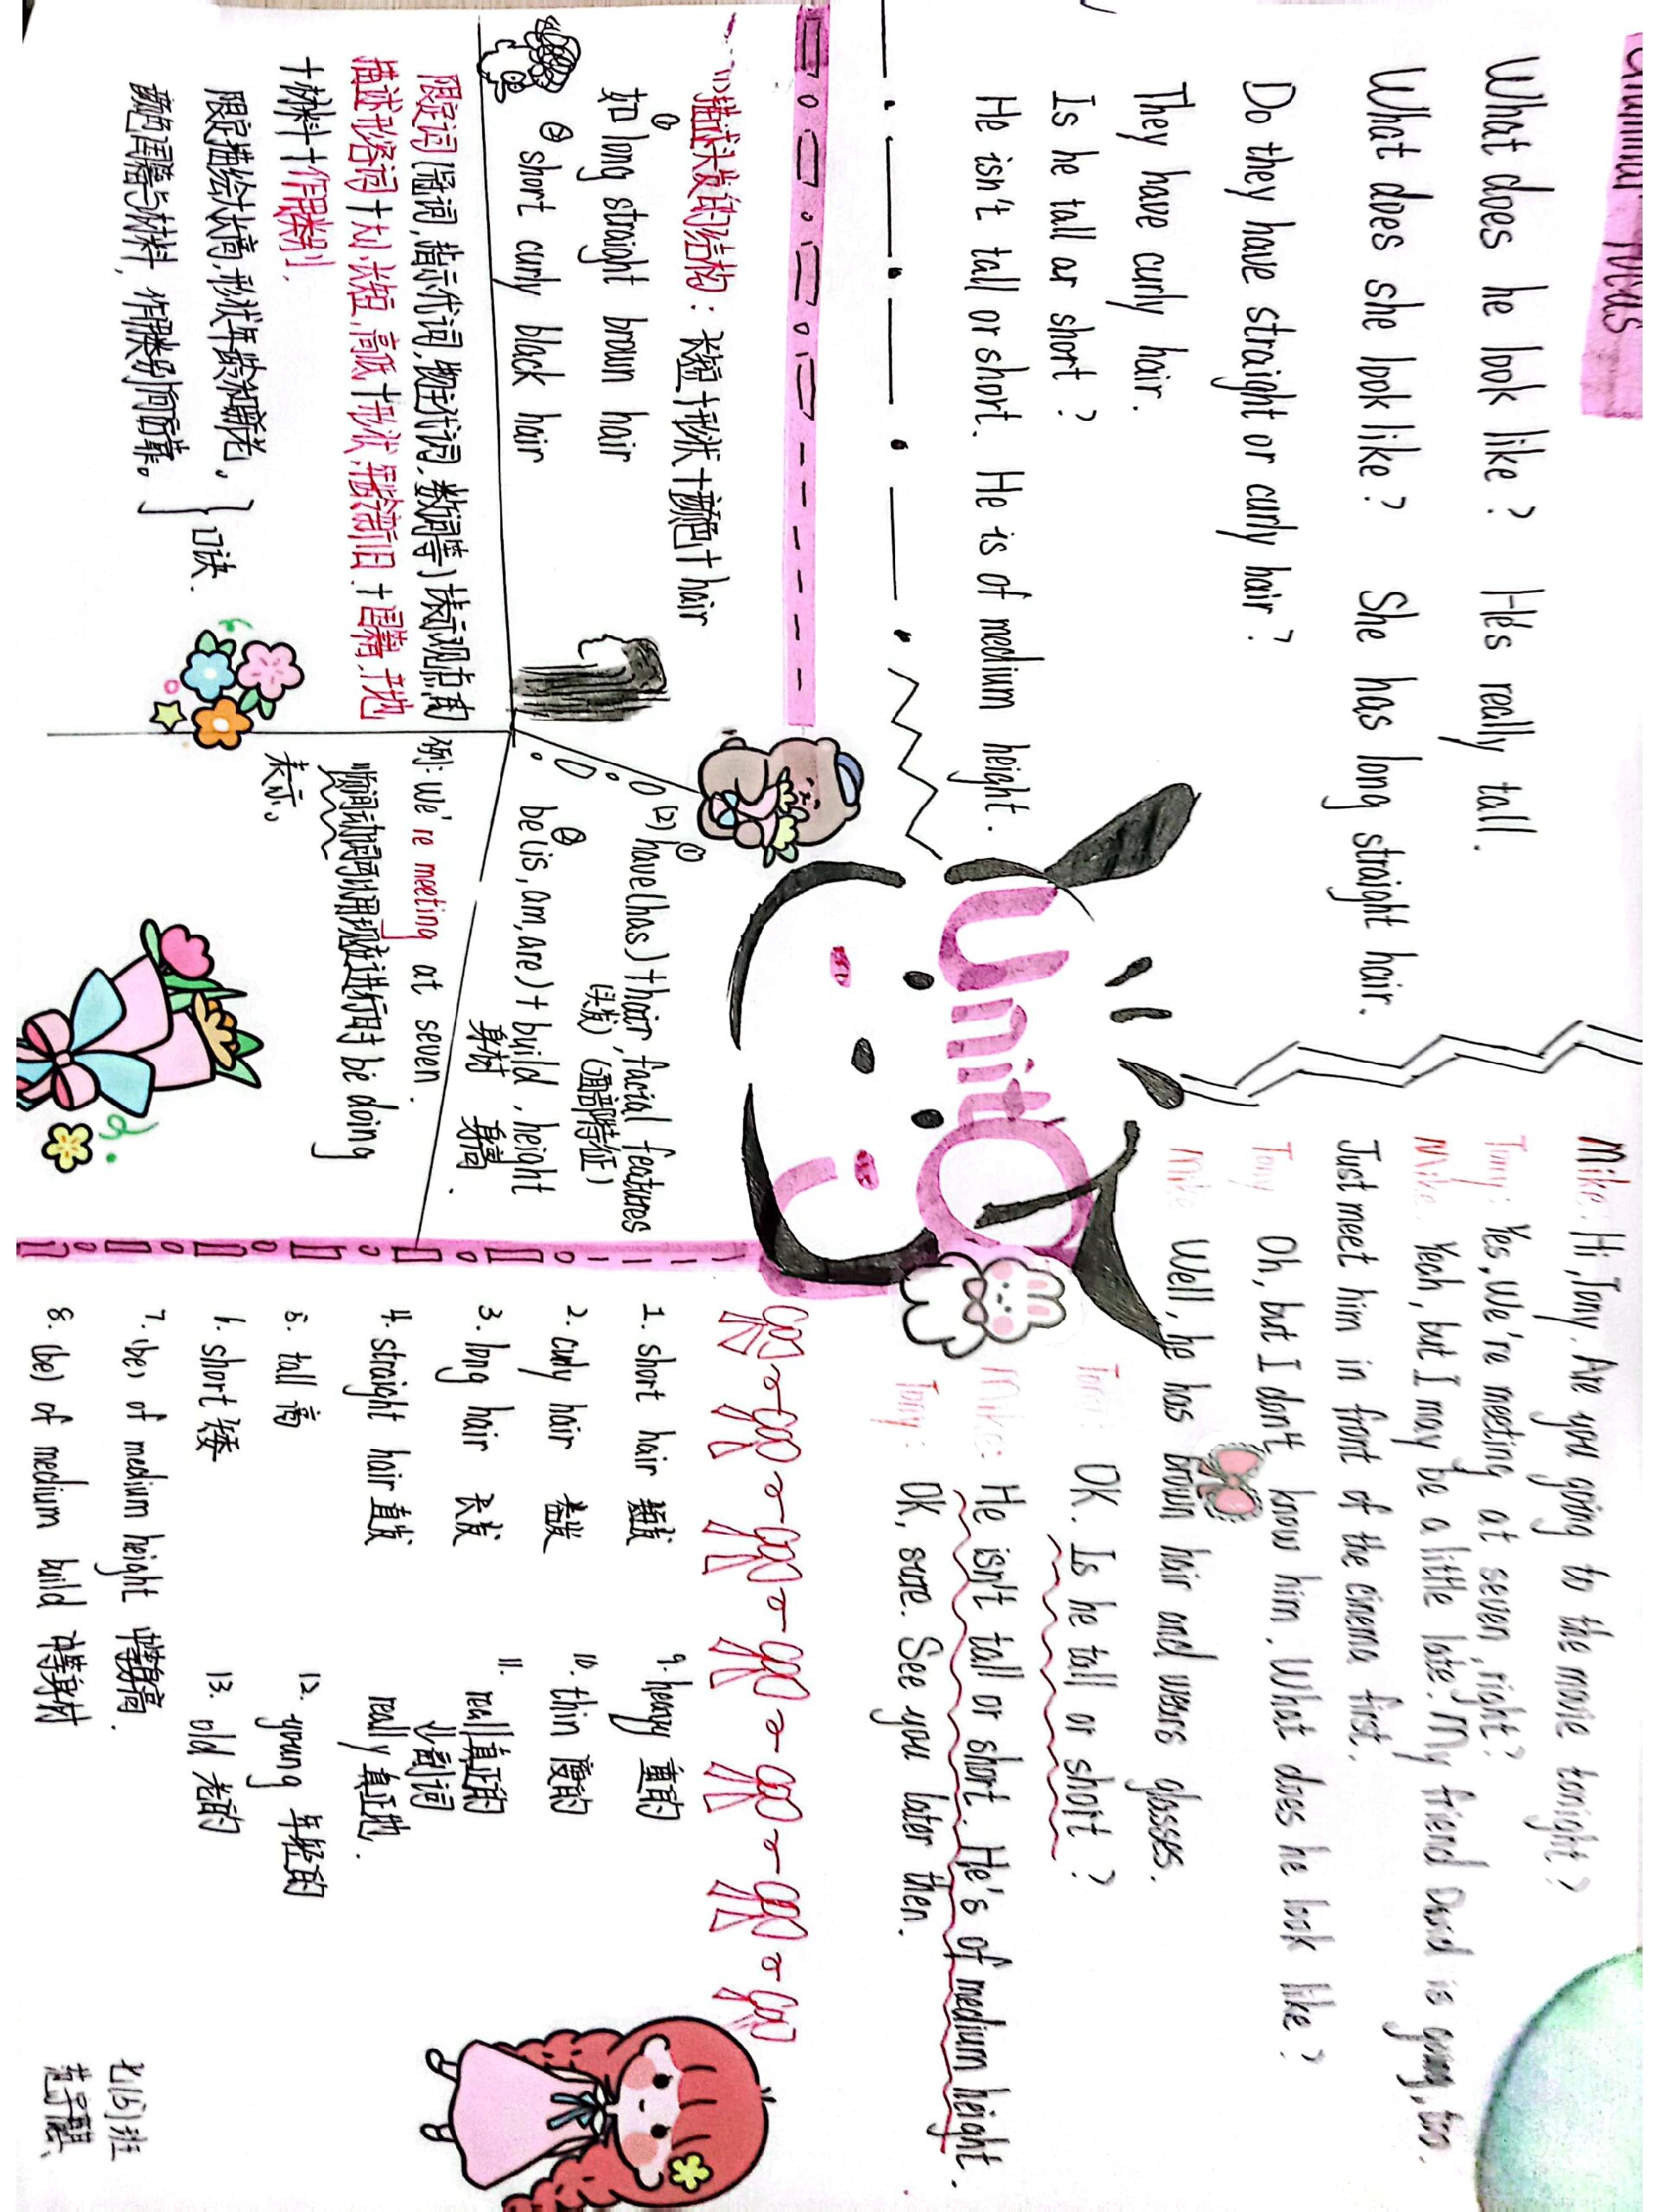 Grammar Focus
What does he look like? He's really tall.
What does she look like? She has long straight hair.
Do they have straight or curly hair?
They have curly hair.
Is he tall or short?
He isn't tall or short. He is of medium height.
Unit 9
Mike: Hi, Tony. Are you going to the movie tonight?
Tony: Yes, We're meeting at seven, right?
Mike: Yeah, but I may be a little late. My friend David is going, too.
Just meet him in front of the cinema first.
Tony: Oh, but I don't know him. What does he look like?
Mike: Well, he has brown hair and wears glasses.
Tony: OK. Is he tall or short?
Mike: He isn't tall or short. He's of medium height.
Tony: OK, sure. See you later then.
(1)描述头发的结构: 长短+形状+颜色+hair
如①long straight brown hair
②short curly black hair
限定词(冠词,指示代词,物主代词,数词等)+表示观点,有
描述形容词+大小,长短,高低+形状,年龄新旧+国籍,+地
+材料+作用类别.
限定描绘大长高,形状年龄和新老。
颜色国籍与材料,作用类别间后靠。
口诀.
(2)①have(has)+hair, facial features
(头发) (面部特征)
②be(is,am,are)+build, height
身材 身高.
例: We're meeting at seven.
"瞬间动词可以用现在进行时be doing
表示。
1. short hair 短发
2. curly hair 卷发
3. long hair 长发
4. straight hair 直发
5. tall 高
6. short 矮
7. (be) of medium height 中等身高.
8. (be) of medium build 中等身材
9. heavy 重的
10. thin 瘦的
11. real 真正的
副词
really 真正地.
12. young 年轻的
13. old 老的
七(6)班